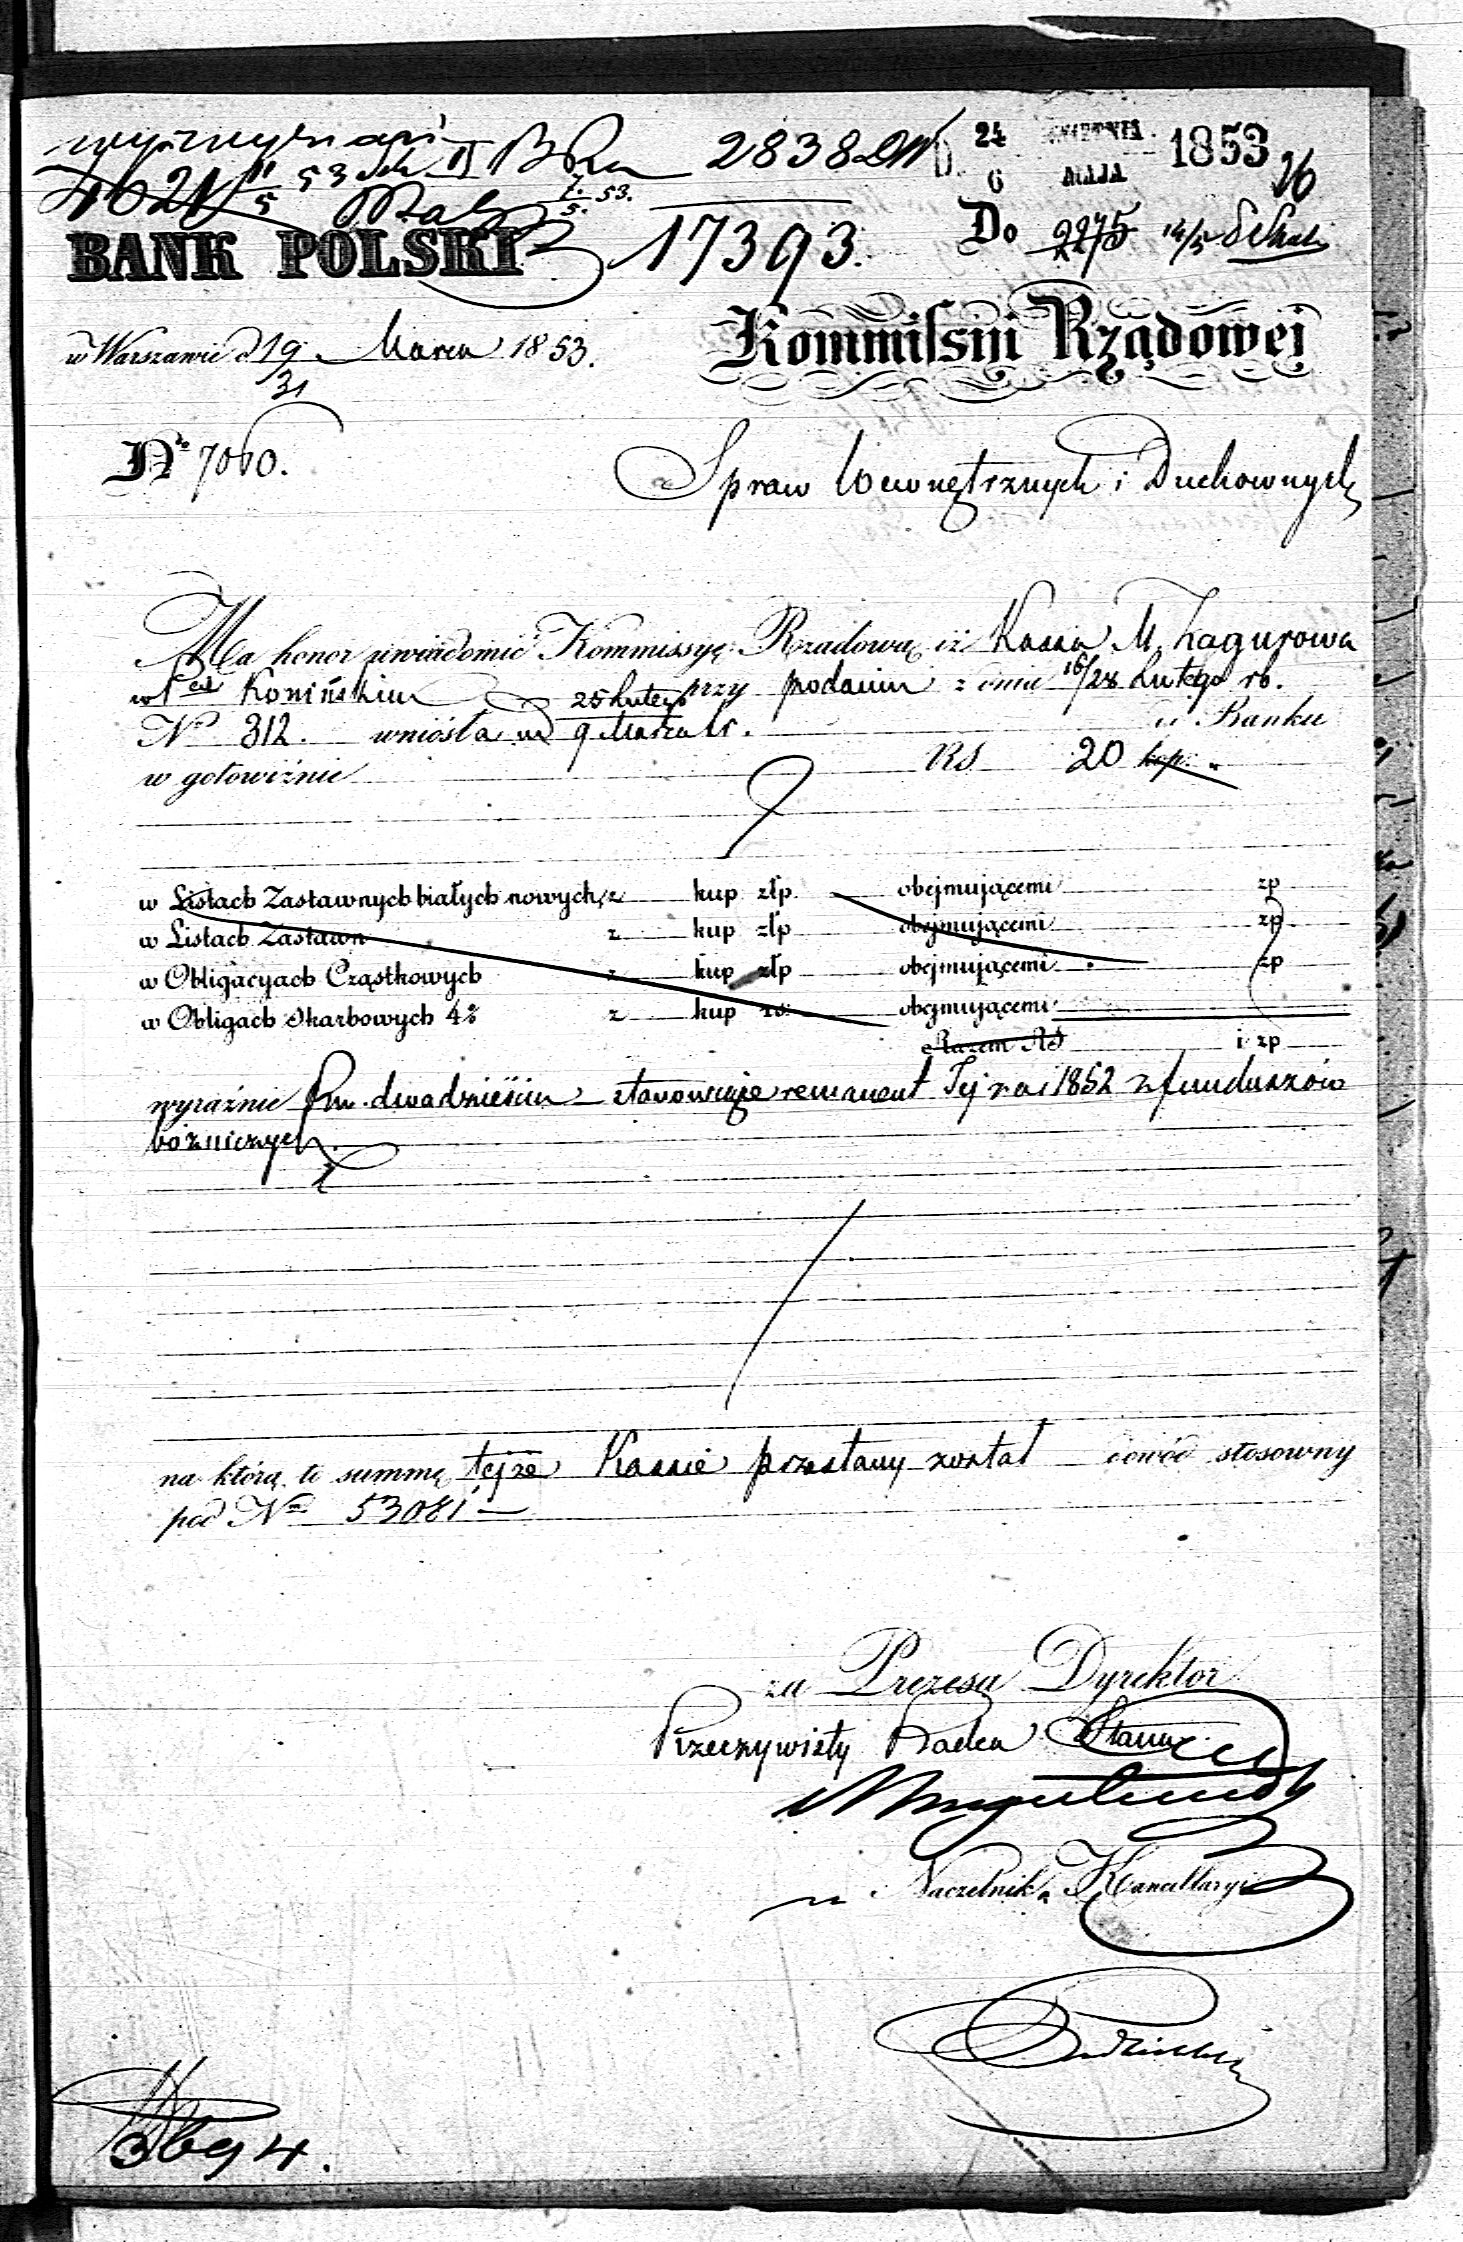 2838 24 KWIETNIA 1853 26
6 MAJA
11/5 53 7/5 53.
BANK POLSKI 17393. Do 2275 14/5
w Warszawie d 19/31 Marca 1853.
Kommissyi Rządowej
No 7060.
Spraw Wewnętrznych i Duchownych
Ma honor uwiadomić Kommissyę Rządową iż Kassa M. Zagurowa
w Pcie Konińskim przy podaniu z dnia 16/28 Lutego rb.
No 312. wniosła na 25 Lutego/9 Marca br. do Banku
w gotowiźnie RS 20 kop "
w Listach Zastawnych białych nowych z kup złp obejmującemi zp
w Listach Zastawn z kup złp obejmującemi zp
w Obligacyach Cząstkowych z kup złp obejmującemi zp
w Obligach Skarbowych 4% z kup rs. obejmującemi
Razem RS i zp
wyraźnie Rsr. dwadzieścia stanowiące remanent Tej za 1852 z funduszów
bóżniczych
na którą to summę tejże Kassie przesłany został dowód stosowny
pod Nm 53081
za Prezesa Dyrektor
Rzeczywisty Radca Stanu
Naczelnik Kancellaryi
3694.